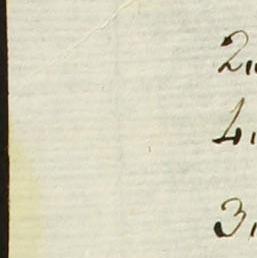 2"
4"
3"